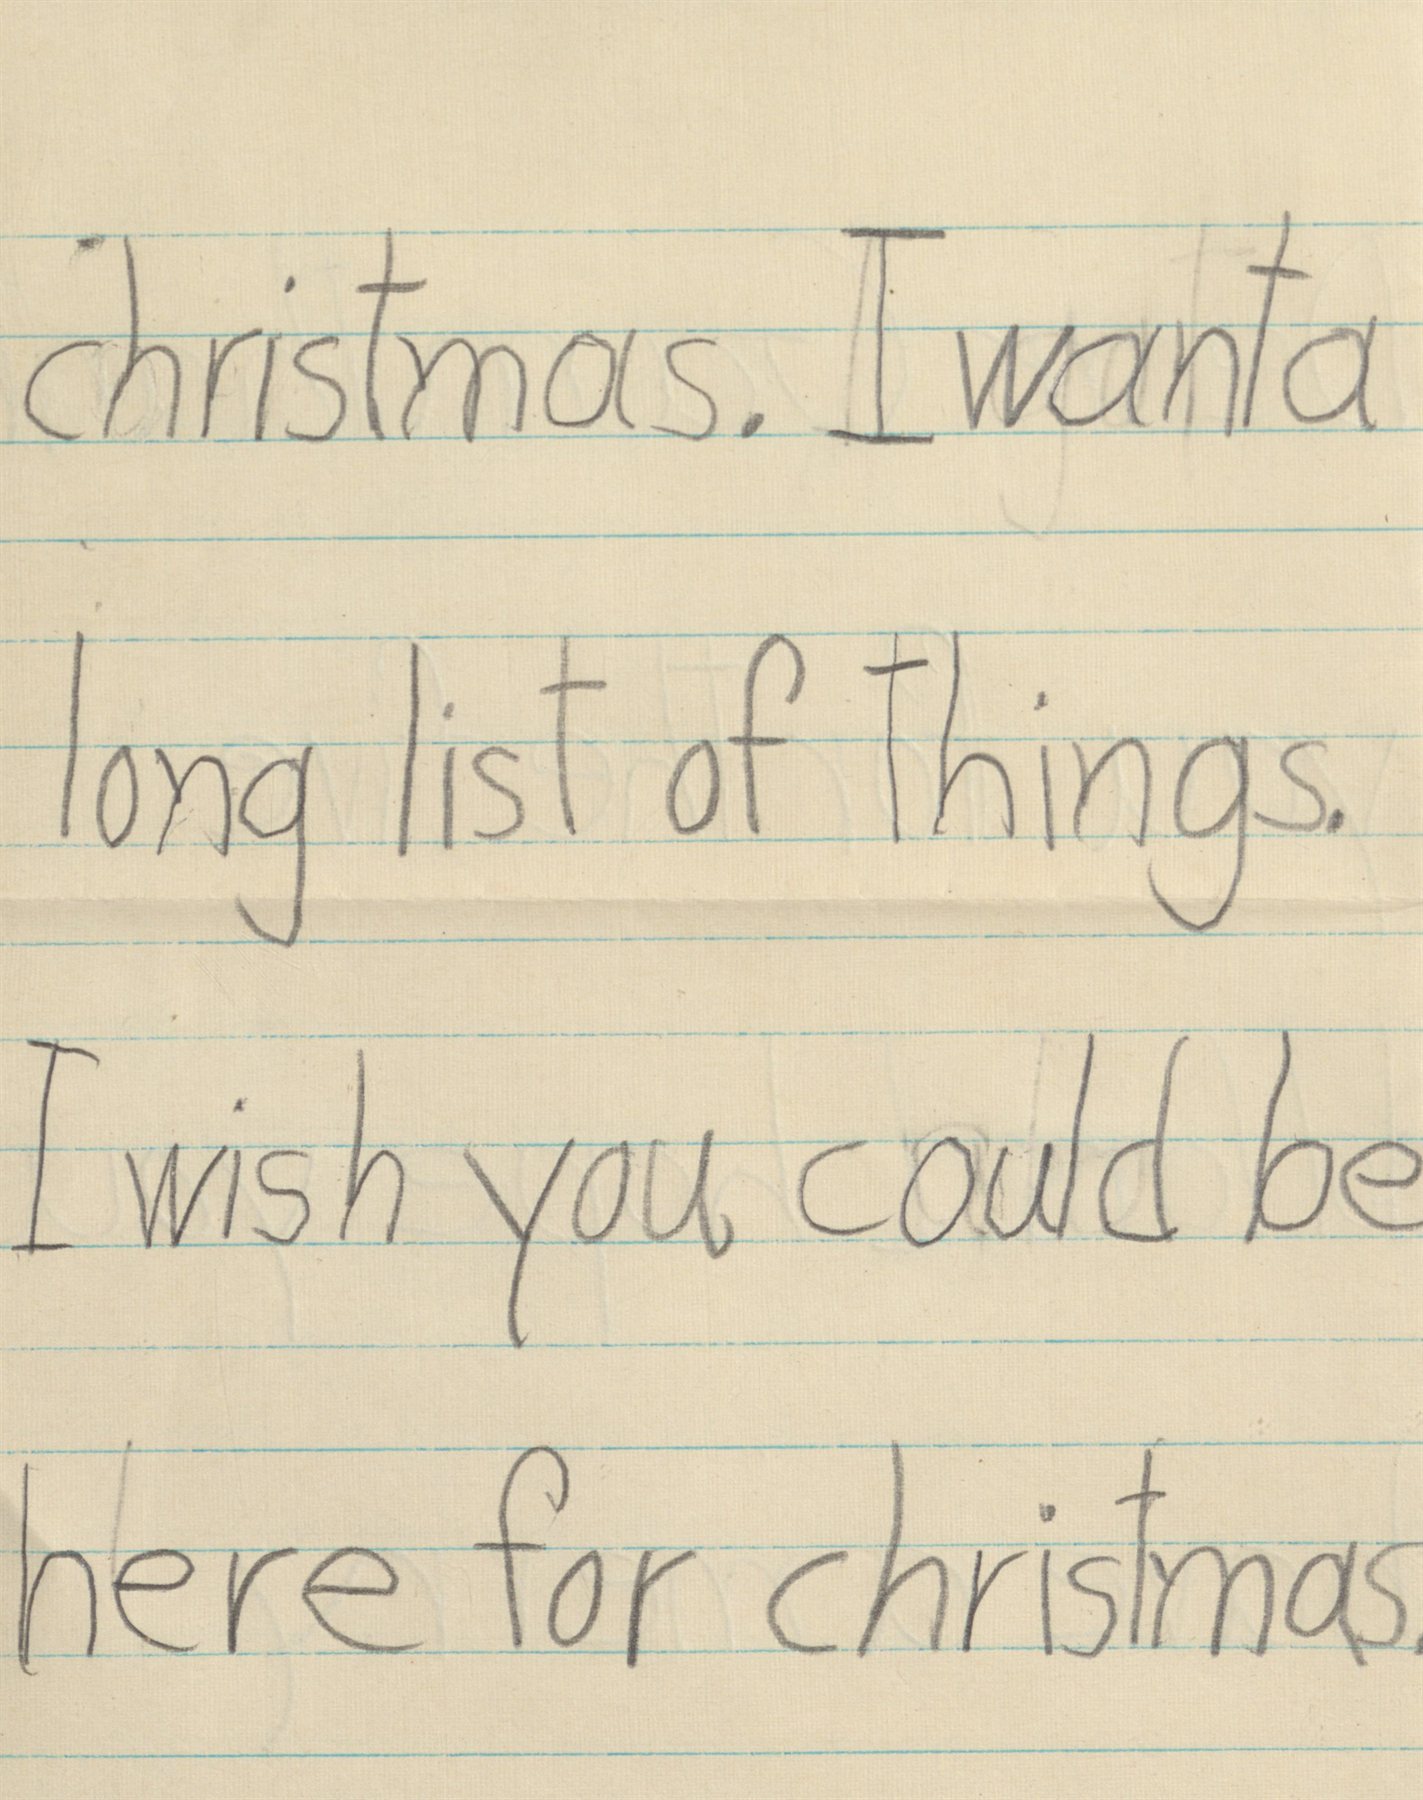 christmas. I want a
long list of things.
I wish you could be
here for christmas.